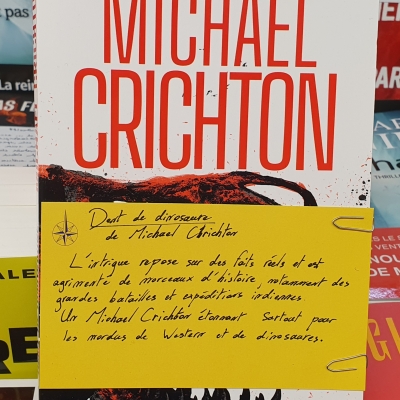 MICHAEL
CRICHTON
Dent de dinosaure
de Michael Crichton
L'intrigue repose sur des faits réels et est
agrimenté de morceaux d'histoire, notamment des
grandes batailles et expéditions indiennes.
Un Michael Crichton étonnant Surtout pour
les mordus de Western et de dinosaures.
pas
La rein
THRILLER